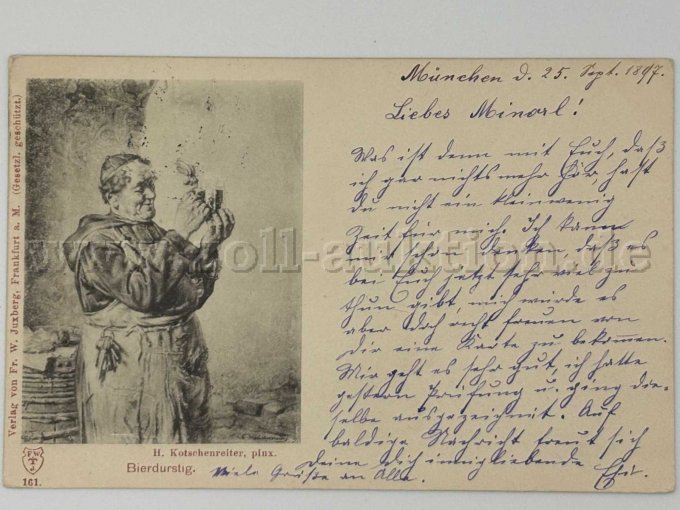 München d. 25. Sept. 1897.
Liebes Minerl!
Was ist denn mit Euch, daß
ich gar nichts mehr hör, hast
du nicht ein kleinwenig
Zeit für mich. Ich kann
mir schon denken daß es
bei Euch jetzt sehr viel zu
thun gibt, mich würde es
aber doch recht freuen von
dir eine Karte zu bekommen.
Mir geht es sehr gut, ich hatte
gestern Prüfung u. ging die-
selbe ausgezeichnet. Auf
baldige Nachricht freut sich
Deine dich innigliebende
Viele Grüße an Alle.
Verlag von Fr. W. Juxberg, Frankfurt a. M. (Gesetzl. geschützt.)
H. Kotschenreiter, pinx.
Bierdurstig.
F W
J
161.
www.zoll-auktion.de